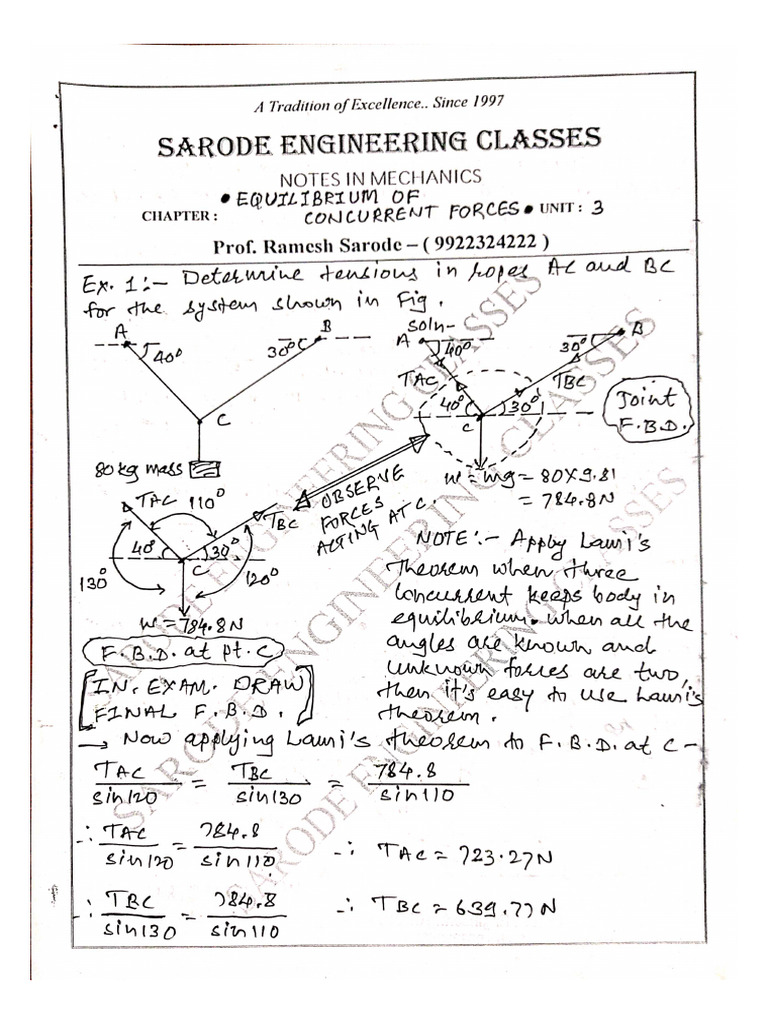 A Tradition of Excellence.. Since 1997
SARODE ENGINEERING CLASSES
NOTES IN MECHANICS
CHAPTER : • EQUILIBRIUM OF
CONCURRENT FORCES • UNIT : 3
Prof. Ramesh Sarode – ( 9922324222 )
Ex. 1 :- Determine tensions in ropes AC and BC
for the system shown in Fig.
A
40°
30°
B
C
80 kg mass
Soln-
A
40°
30°
B
TAC
TBC
40°
30°
C
Joint
F.B.D.
W = mg = 80X9.81
= 784.8N
OBSERVE
FORCES
ACTING AT C.
TAC
110°
TBC
40°
30°
C
130°
120°
W = 784.8N
F.B.D. at pt. C
[IN. EXAM. DRAW
FINAL F.B.D.]
NOTE :- Apply Lami's
Theorem when three
Concurrent keeps body in
equilibrium. when all the
angles are known and
unknown forces are two,
then it's easy to use Lami's
theorem.
→ Now applying Lami's theorem to F.B.D. at C -
TAC/sin120 = TBC/sin130 = 784.8/sin110
∴ TAC/sin120 = 784.8/sin110 ∴ TAC = 723.27N
∴ TBC/sin130 = 784.8/sin110 ∴ TBC = 639.77N
SARODE ENGINEERING CLASSES
SARODE ENGINEERING CLASSES